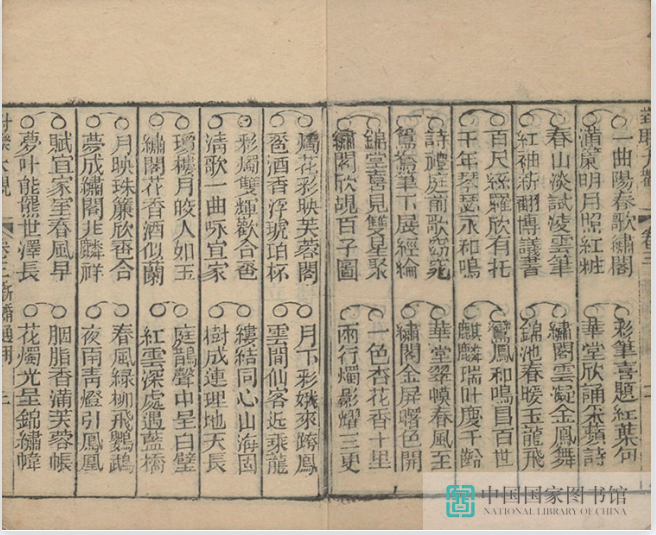 對聯大觀 卷三
一曲陽春歌繡閣 彩筆喜題紅葉句
滿簾明月照紅粧 華堂欣誦采蘋詩
春山淡試凌雲筆 繡閣雲凝金鳳舞
紅袖新翻博議書 錦池春暖玉龍飛
百尺絲蘿欣有托 鸞鳳和鳴昌百世
千年琴瑟永和鳴 麒麟瑞叶慶千齡
詩禮庭前歌窈窕 華堂翠幙春風至
鴛鴦筆下展經綸 繡閣金屏曙色開
錦堂喜見雙星聚 一色杏花香十里
繡閣欣覘百子圖 兩行燭影耀三更
燭花彩映芙蓉閣 月下彩娥來跨鳳
巹酒香浮琥珀杯 雲間仙客近乘龍
彩燭雙輝歡合巹 縷結同心山海固
清歌一曲咏宜家 樹成連理地天長
瓊樓月皎人如玉 庭鵲聲中呈白璧
繡閣花香酒似蘭 紅雲深處遇藍橋
月映珠簾欣巹合 春風綠柳飛鸚鵡
夢成繡閣兆麟祥 夜雨青燈引鳳凰
賦宜家室春風早 胭脂香滿芙蓉帳
夢叶能羆世澤長 花燭光呈錦繡幃
對聯大觀 卷三 新婚通用
中国国家图书馆
NATIONAL LIBRARY OF CHINA